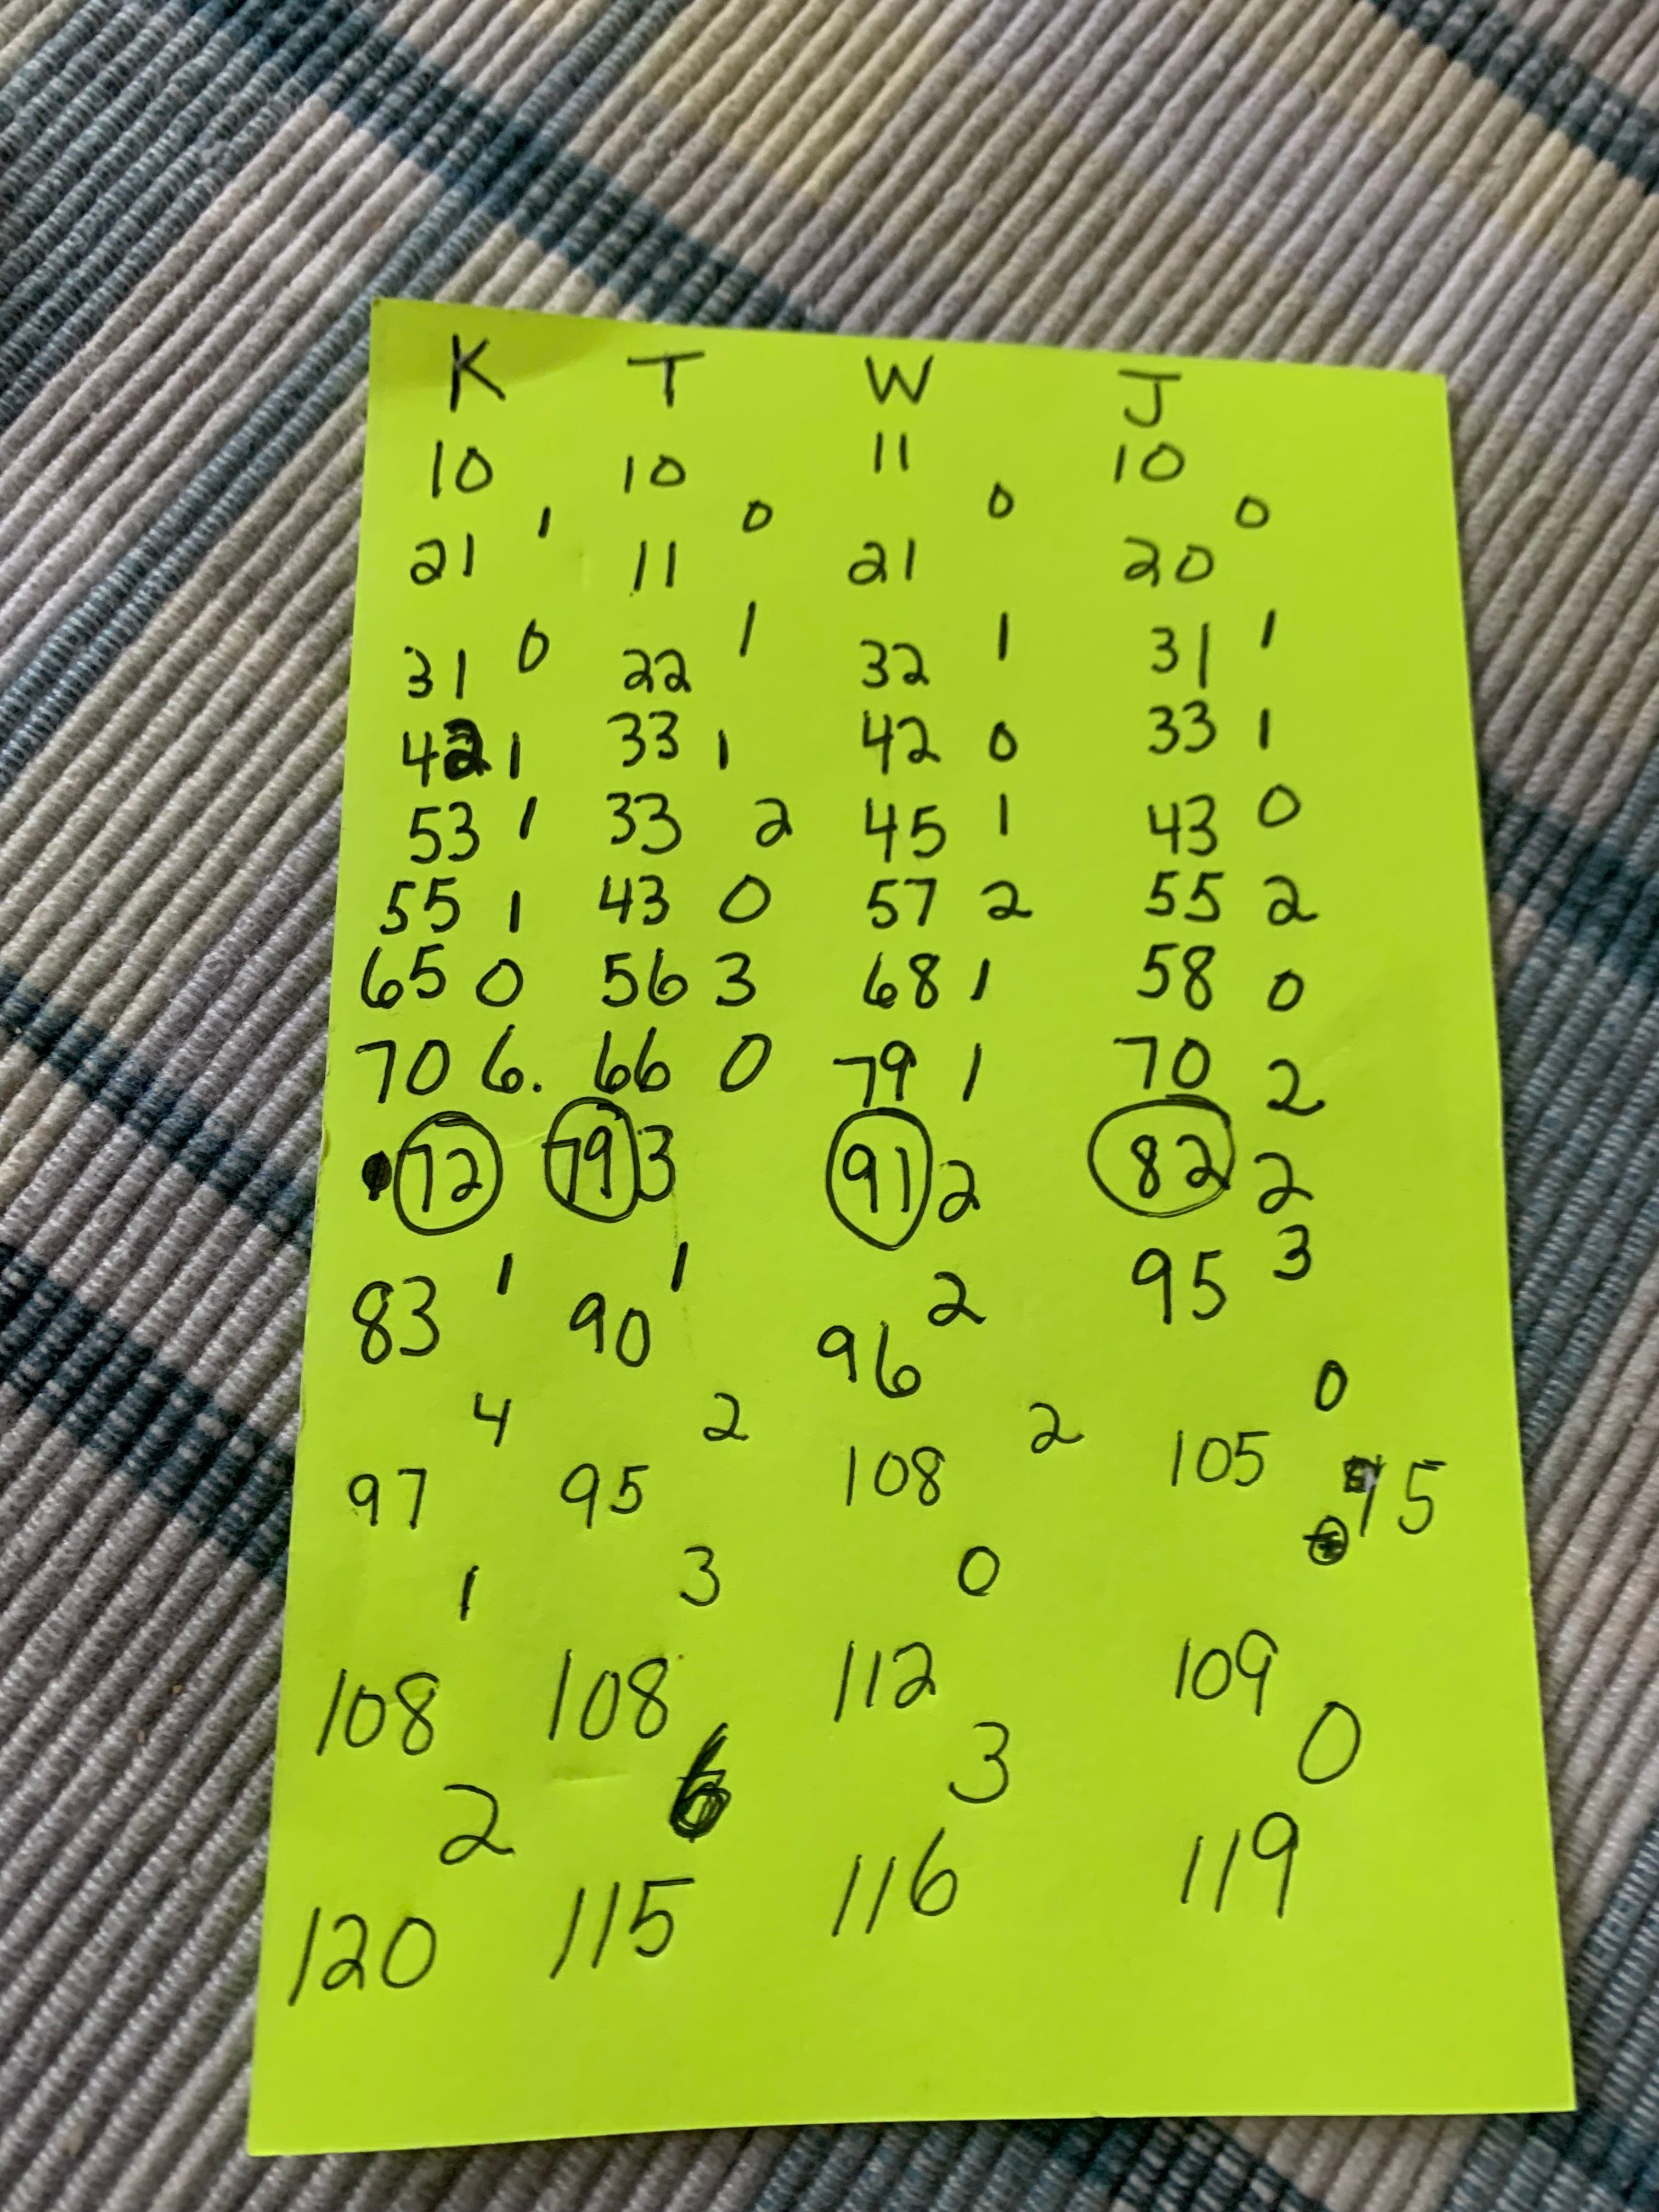 K T W J
10 10 11 10
1 0 0 0
21 11 21 20
0 1 1 1
31 22 32 31
42 1 33 1 42 0 33 1
53 1 33 2 45 1 43 0
55 1 43 0 57 2 55 2
65 0 56 3 68 1 58 0
70 6. 66 0 79 1 70 2
72 79 3 91 2 82 2
1 1 2 3
83 90 96 95
4 2 2 0
97 95 108 105
5
1 3 0
108 108 112 109
2 6 3 0
120 115 116 119